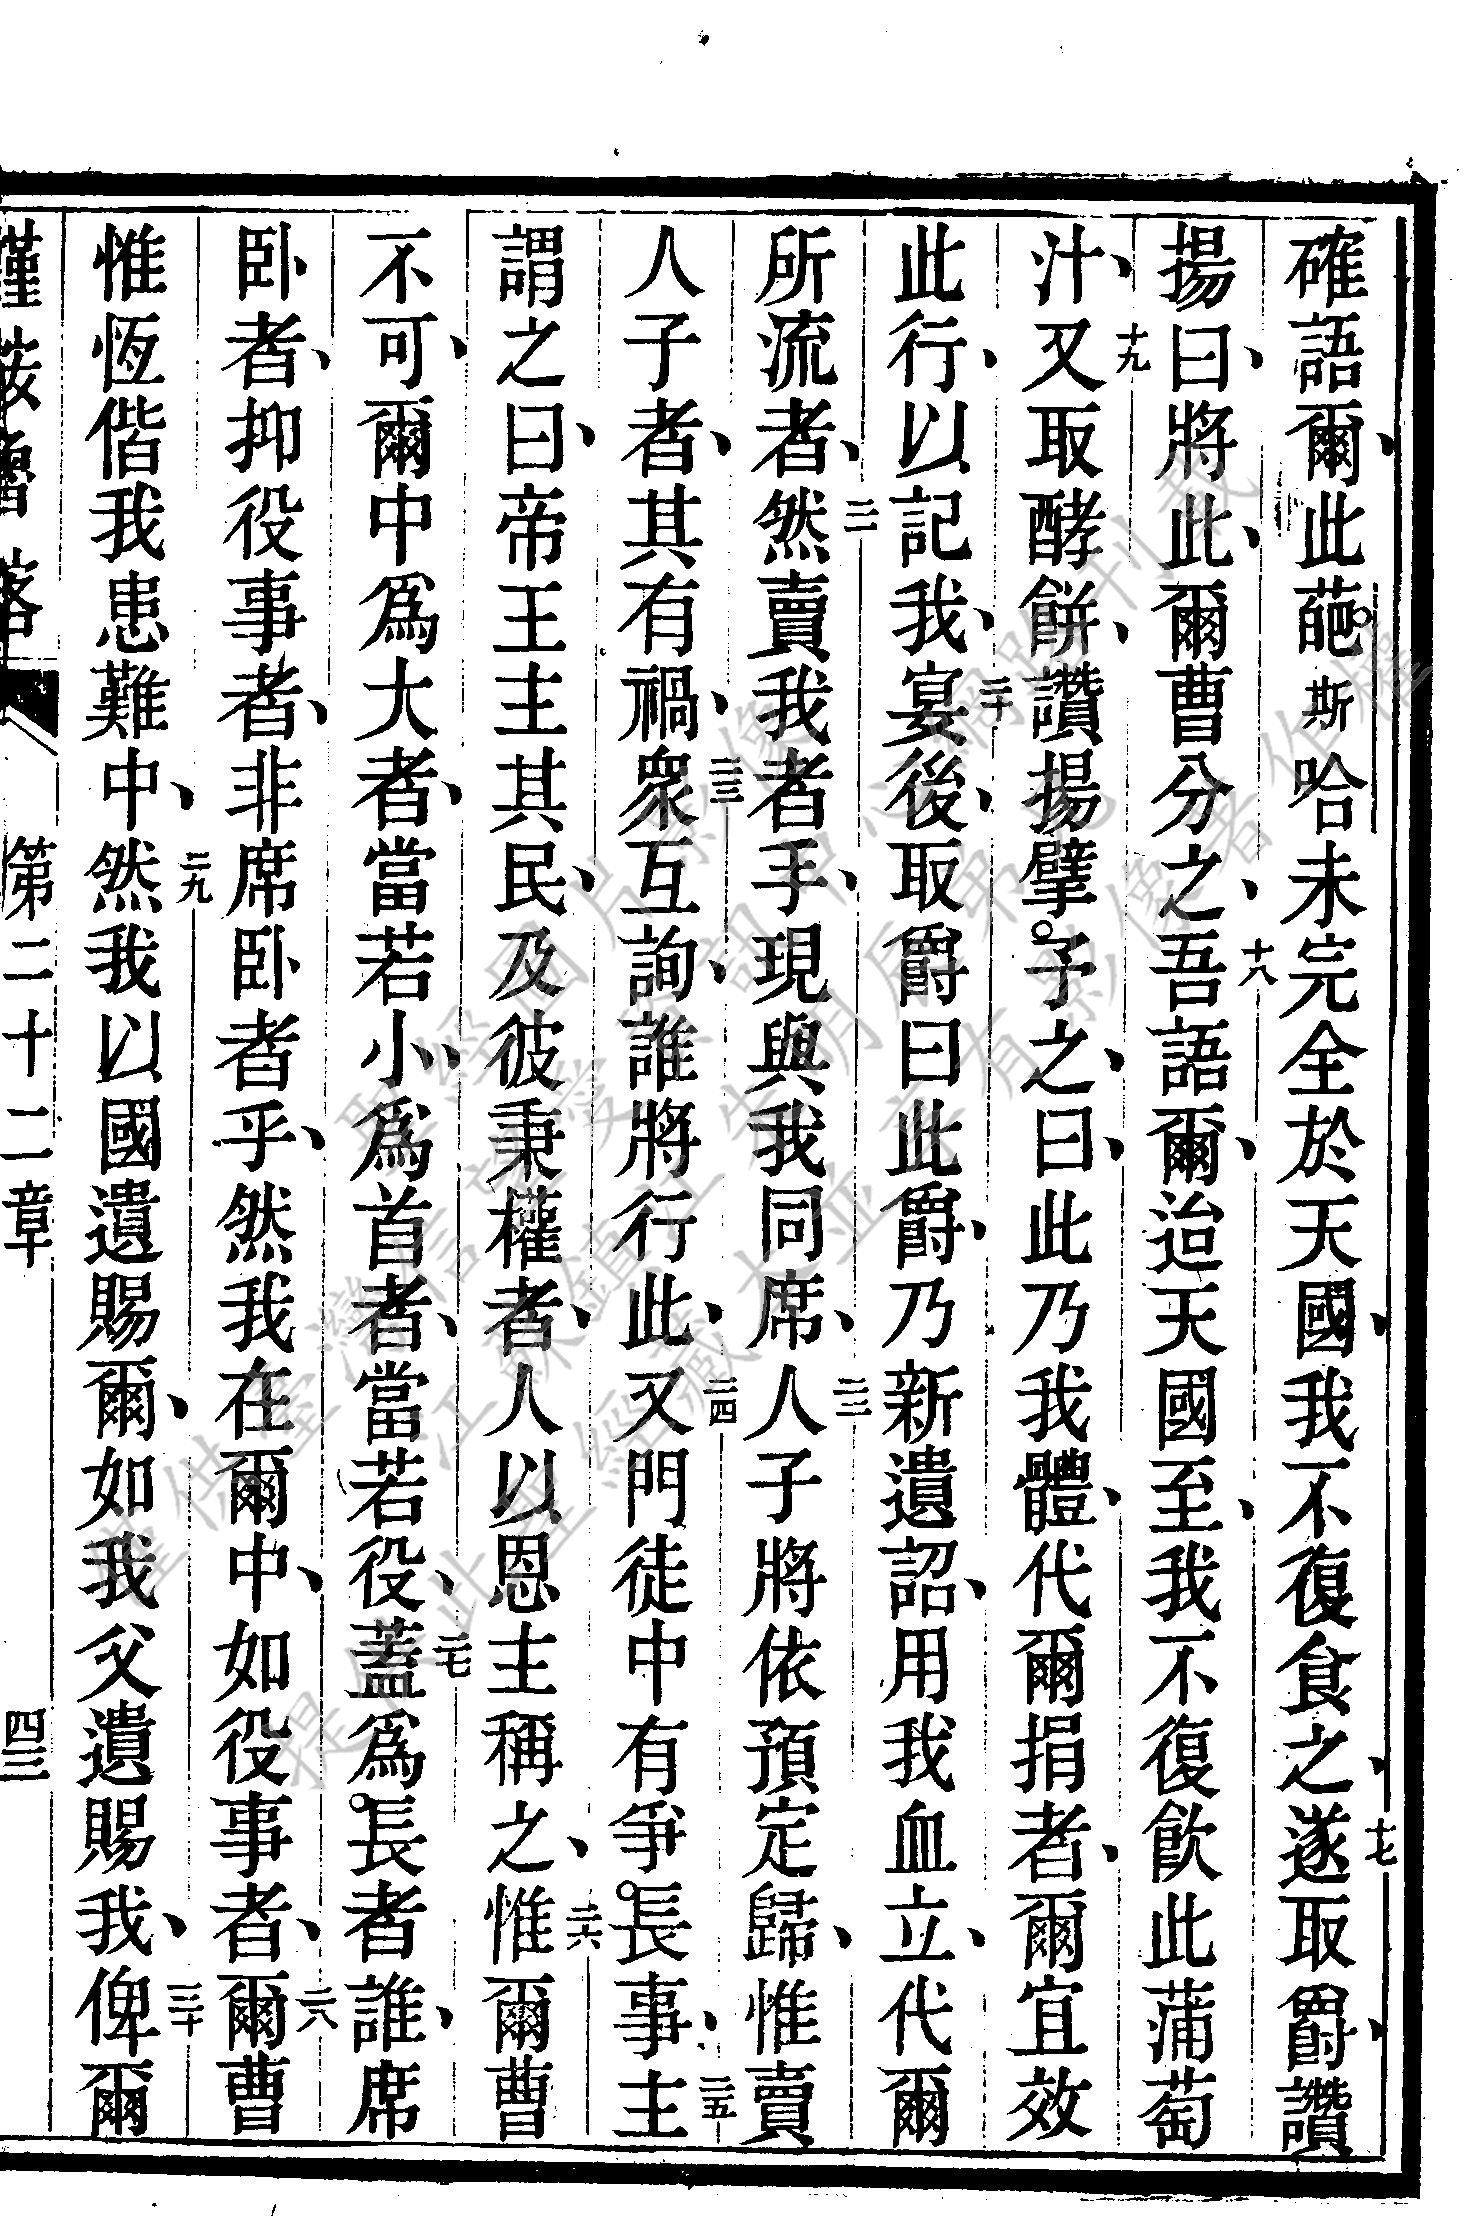 確語爾、此葩斯哈未完全於天國、我不復食之、十七遂取爵、讚
揚曰、將此、爾曹分之、十八吾語爾、迨天國至、我不復飲此蒲萄
汁、十九又取酵餅、讚揚擘予之、曰、此乃我體、代爾捐者、爾宜效
此行、以記我、二十宴後、取爵曰此爵、乃新遺詔、用我血立、代爾
所流者、二一然賣我者手、現與我同席、二二人子將依預定歸、惟賣
人子者、其有禍、二三衆互詢、誰將行此、二四又門徒中有爭長事、二五主
謂之曰、帝王主其民、及彼秉權者、人以恩主稱之、二六惟爾曹
不可、爾中爲大者、當若小、爲首者、當若役、二七蓋爲長者誰、席
臥者、抑役事者、非席臥者乎、然我在爾中、如役事者、二八爾曹
惟恆偕我患難中、二九然我以國遺賜爾、如我父遺賜我、三十俾爾
第二十二章 四三